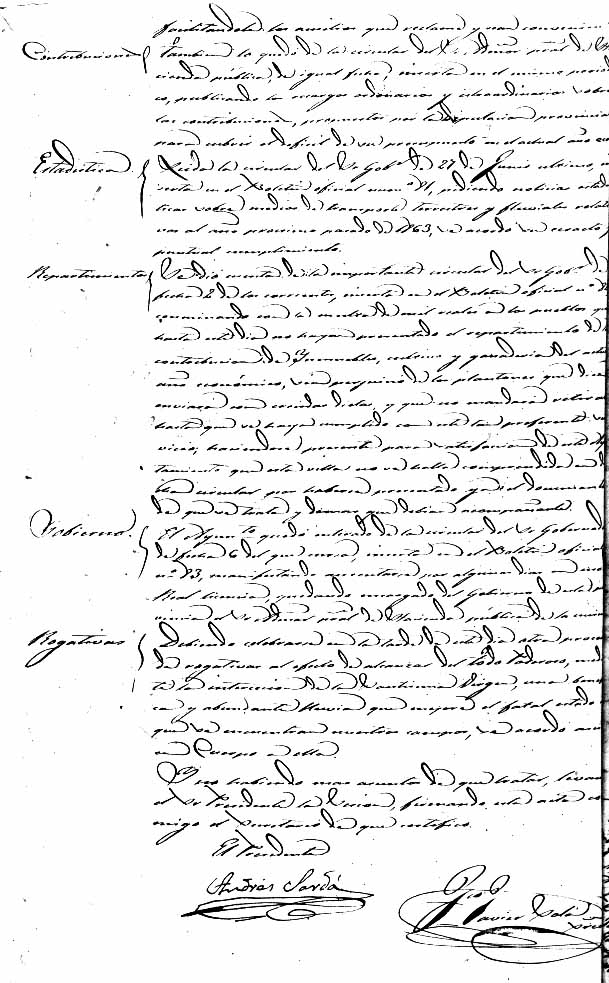 facilitandole los auxilios que reclame y sean conveni
Contribuciones
Tambien lo quedó de la circular del Sr.
cienda pública, de igual fecha, inserta en el mismo periodi
co, publicando los recargos ordinarios y estraordinarios sobre
las contribuciones, propuestos por la Diputacion provincial
para cubrir el deficit de su presupuesto en el actual año eco
Estadistica
Leida la circular del Sr. Gobr. de 27 de Junio ultimo in
serta en el Boletin oficial num. 71, pidiendo noticias estadis
ticas sobre medios de transporte terrestres y fluviales relati
vas al año proximo pasado de 1863, se acordó su exacto y
puntual cumplimiento.
Repartimientos
Se dió cuenta de la importante circular del Sr. Gobr. de
fecha 2 de los corrientes, inserta en el Boletin oficial nº
conminando con la multa de mil reales á los pueblos que
hasta este dia no hayan presentado el repartimiento de la
contribucion de Inmuebles, cultivo y ganaderia del actual
año económico, sin perjuicio de los plantones que dice
enviará con crecidas dietas, y que no mandará retirar
hasta que se haya cumplido con este tan preferente ser
vicio, haciendose presente para satisfaccion de este Ayun
tamiento que esta villa no se halla comprendida en di
cha circular por haberse presentado ya el documento
de que se trata y demas que debian acompañarle.
Gobierno.
El Ayunto. quedó enterado de la circular del Sr. Gobernador
de fecha 6 del que cursa, inserta en el Boletin oficial
nº 83, manifestando ausentarse por algunos dias en uso de
Real licencia, quedando encargado del Gobierno de esta pro
vincia el Sr. de Hacienda pública de la misma
Rogativas
Debiendo celebrarse en la tarde de este dia otra procesion
de rogativas al efecto de alcanzar del Todo Poderoso, median
te la intercesion de la Santisima Virgen, una benefi
ca y abundante lluvia que mejore el fatal estado en
que se encuentran nuestros campos, se acordó asistir
en Cuerpo á ella.
Y no habiendo mas asuntos de que tratar, levantó
el Sr. Presidente la Sesion, firmando esta acta con
migo el Secretario de que certifico.
El Presidente
Andrés Sardá
Javier